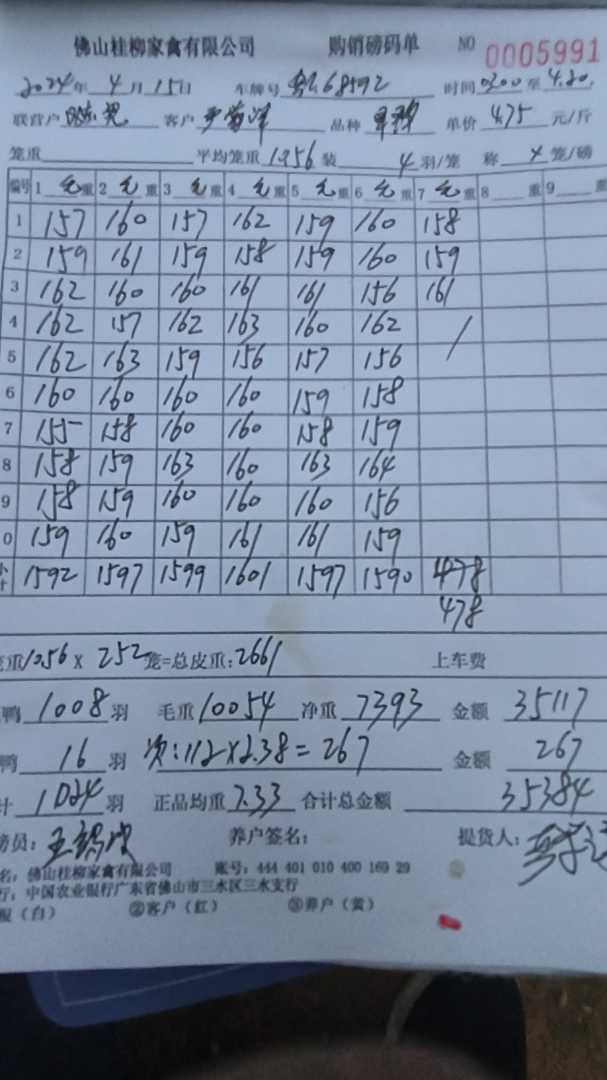 佛山桂柳家禽有限公司 购销磅码单 NO 0005991
2024年 4月 15日 车牌号 68592 时间 0200 至 4.20
联营户 客户 品种 单价 4.75 元/斤
笼重 平均笼重 10.56 装 4 羽/笼 称 4 笼/磅
编号 1 毛重 2 毛重 3 毛重 4 毛重 5 毛重 6 毛重 7 毛重 8 重 9 重
1 157 160 157 162 159 160 158
2 159 161 159 158 159 160 159
3 162 160 160 161 161 156 161
4 162 157 162 163 160 162 /
5 162 163 159 156 157 156
6 160 160 160 160 159 158
7 155 158 160 160 158 159
8 158 159 163 160 163 164
9 158 159 160 160 160 156
0 159 160 159 161 161 159
小计 1592 1597 1599 1601 1597 1590 478
478
笼重 10.56 × 252 笼=总皮重: 2661 上车费
鸭 1008 羽 毛重 10054 净重 7393 金额 35117
鸭 16 羽 次:112×2.38=267 金额 267
计 1024 羽 正品均重 7.33 合计总金额 35384
磅员: 养户签名: 提货人:
名: 佛山桂柳家禽有限公司 账号: 444 401 010 400 169 29
行: 中国农业银行广东省佛山市三水区三水支行
(白) ②客户(红) ③养户(黄)